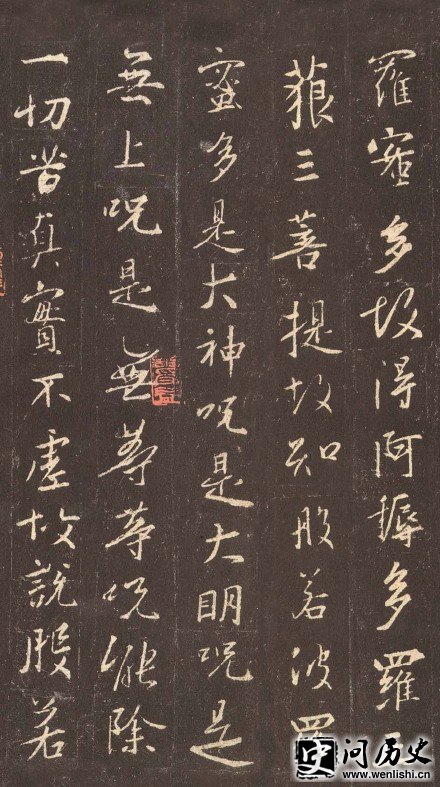 羅蜜多故得阿耨多羅
藐三菩提故知般若波羅
蜜多是大神呪是大明呪是
無上呪是無等等呪能除
一切苦真實不虛故說般若
问历史
www.wenlishi.cn